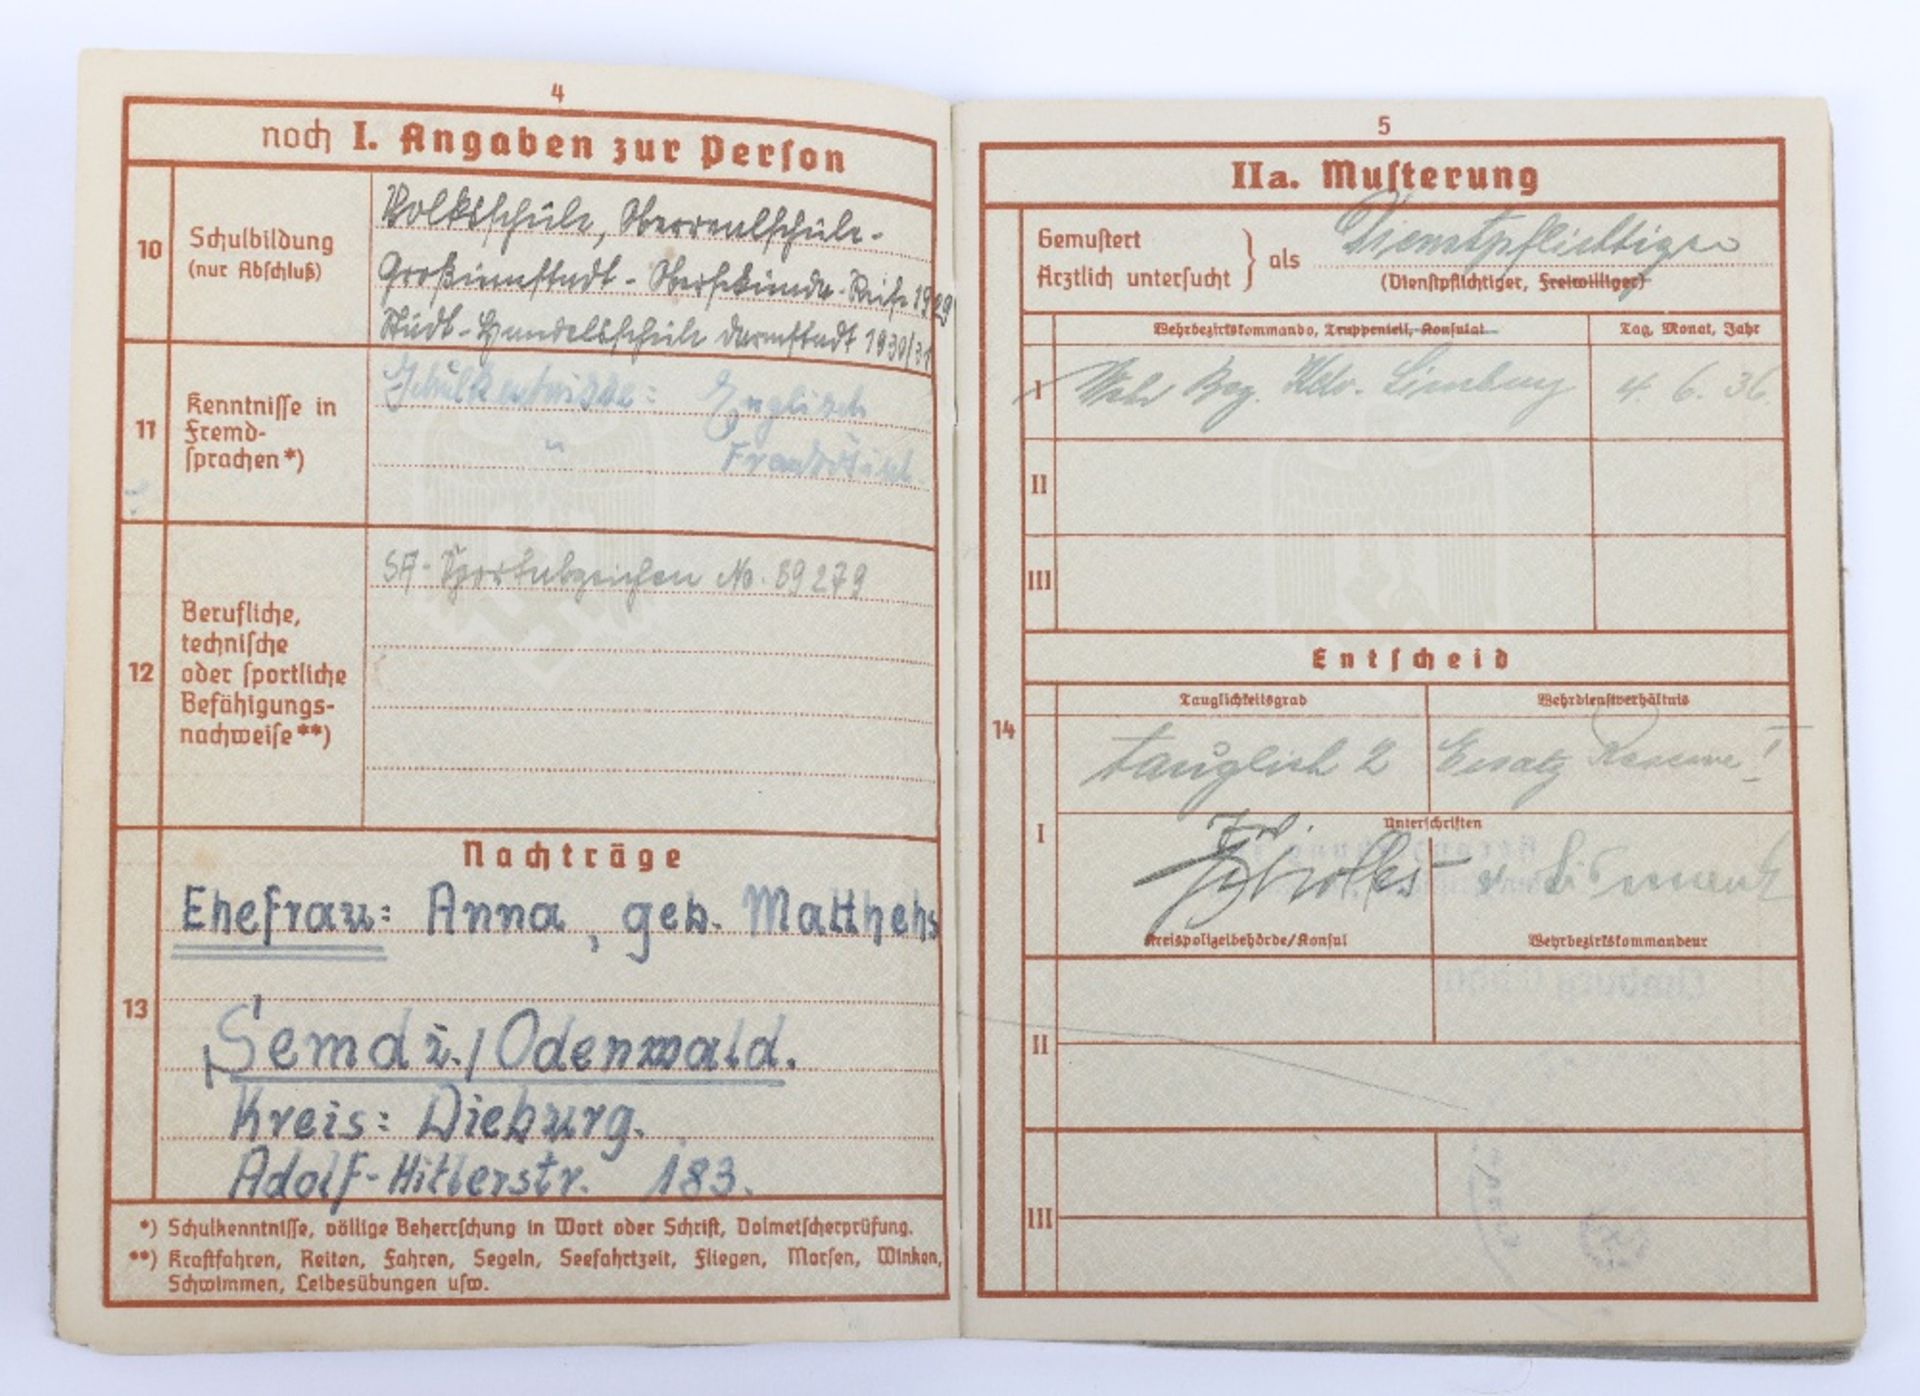 4
noch I. Angaben zur Person
10
Schulbildung
(nur Abschluß)
Volksschule, Oberrealschule-
Großumstadt - Obersekunda-Reife 1929
Städt. Handelsschule Darmstadt 1930/31
11
Kenntnisse in
Fremd-
sprachen*)
Schulkentnisse: Englisch
" Französisch
12
Berufliche,
technische
oder sportliche
Befähigungs-
nachweise**)
SA-Sportabzeichen No. 89279
Nachträge
13
Ehefrau: Anna, geb. Matthehs
Semd i./Odenwald.
Kreis: Dieburg.
Adolf-Hitlerstr. 183.
*) Schulkenntnisse, völlige Beherrschung in Wort oder Schrift, Dolmetscherprüfung.
**) Kraftfahren, Reiten, Fahren, Segeln, Seefahrtzeit, Fliegen, Morsen, Winken,
Schwimmen, Leibesübungen usw.
5
IIa. Musterung
Gemustert
Ärztlich untersucht } als Dienstpflichtiger
(Dienstpflichtiger, Freiwilliger)
Wehrbezirkskommando, Truppenteil, Konsulat
Tag, Monat, Jahr
I
Wehr Bez. Kdo. Limburg 4. 6. 36.
II
III
Entscheid
14
Tauglichkeitsgrad
Wehrdienstverhältnis
tauglich 2
Ersatz Reserve I
I
Unterschriften
Kreispolizeibehörde/Konsul
Wehrbezirkskommandeur
II
III